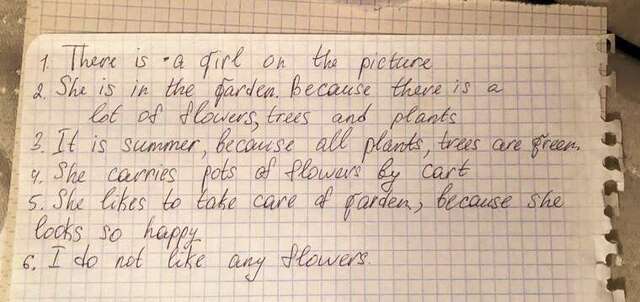 1. There is a girl on the picture
2. She is in the garden. Because there is a
lot of flowers, trees and plants
3. It is summer, because all plants, trees are green.
4. She carries pots of flowers by cart
5. She likes to take care of garden, because she
looks so happy
6. I do not like any flowers.